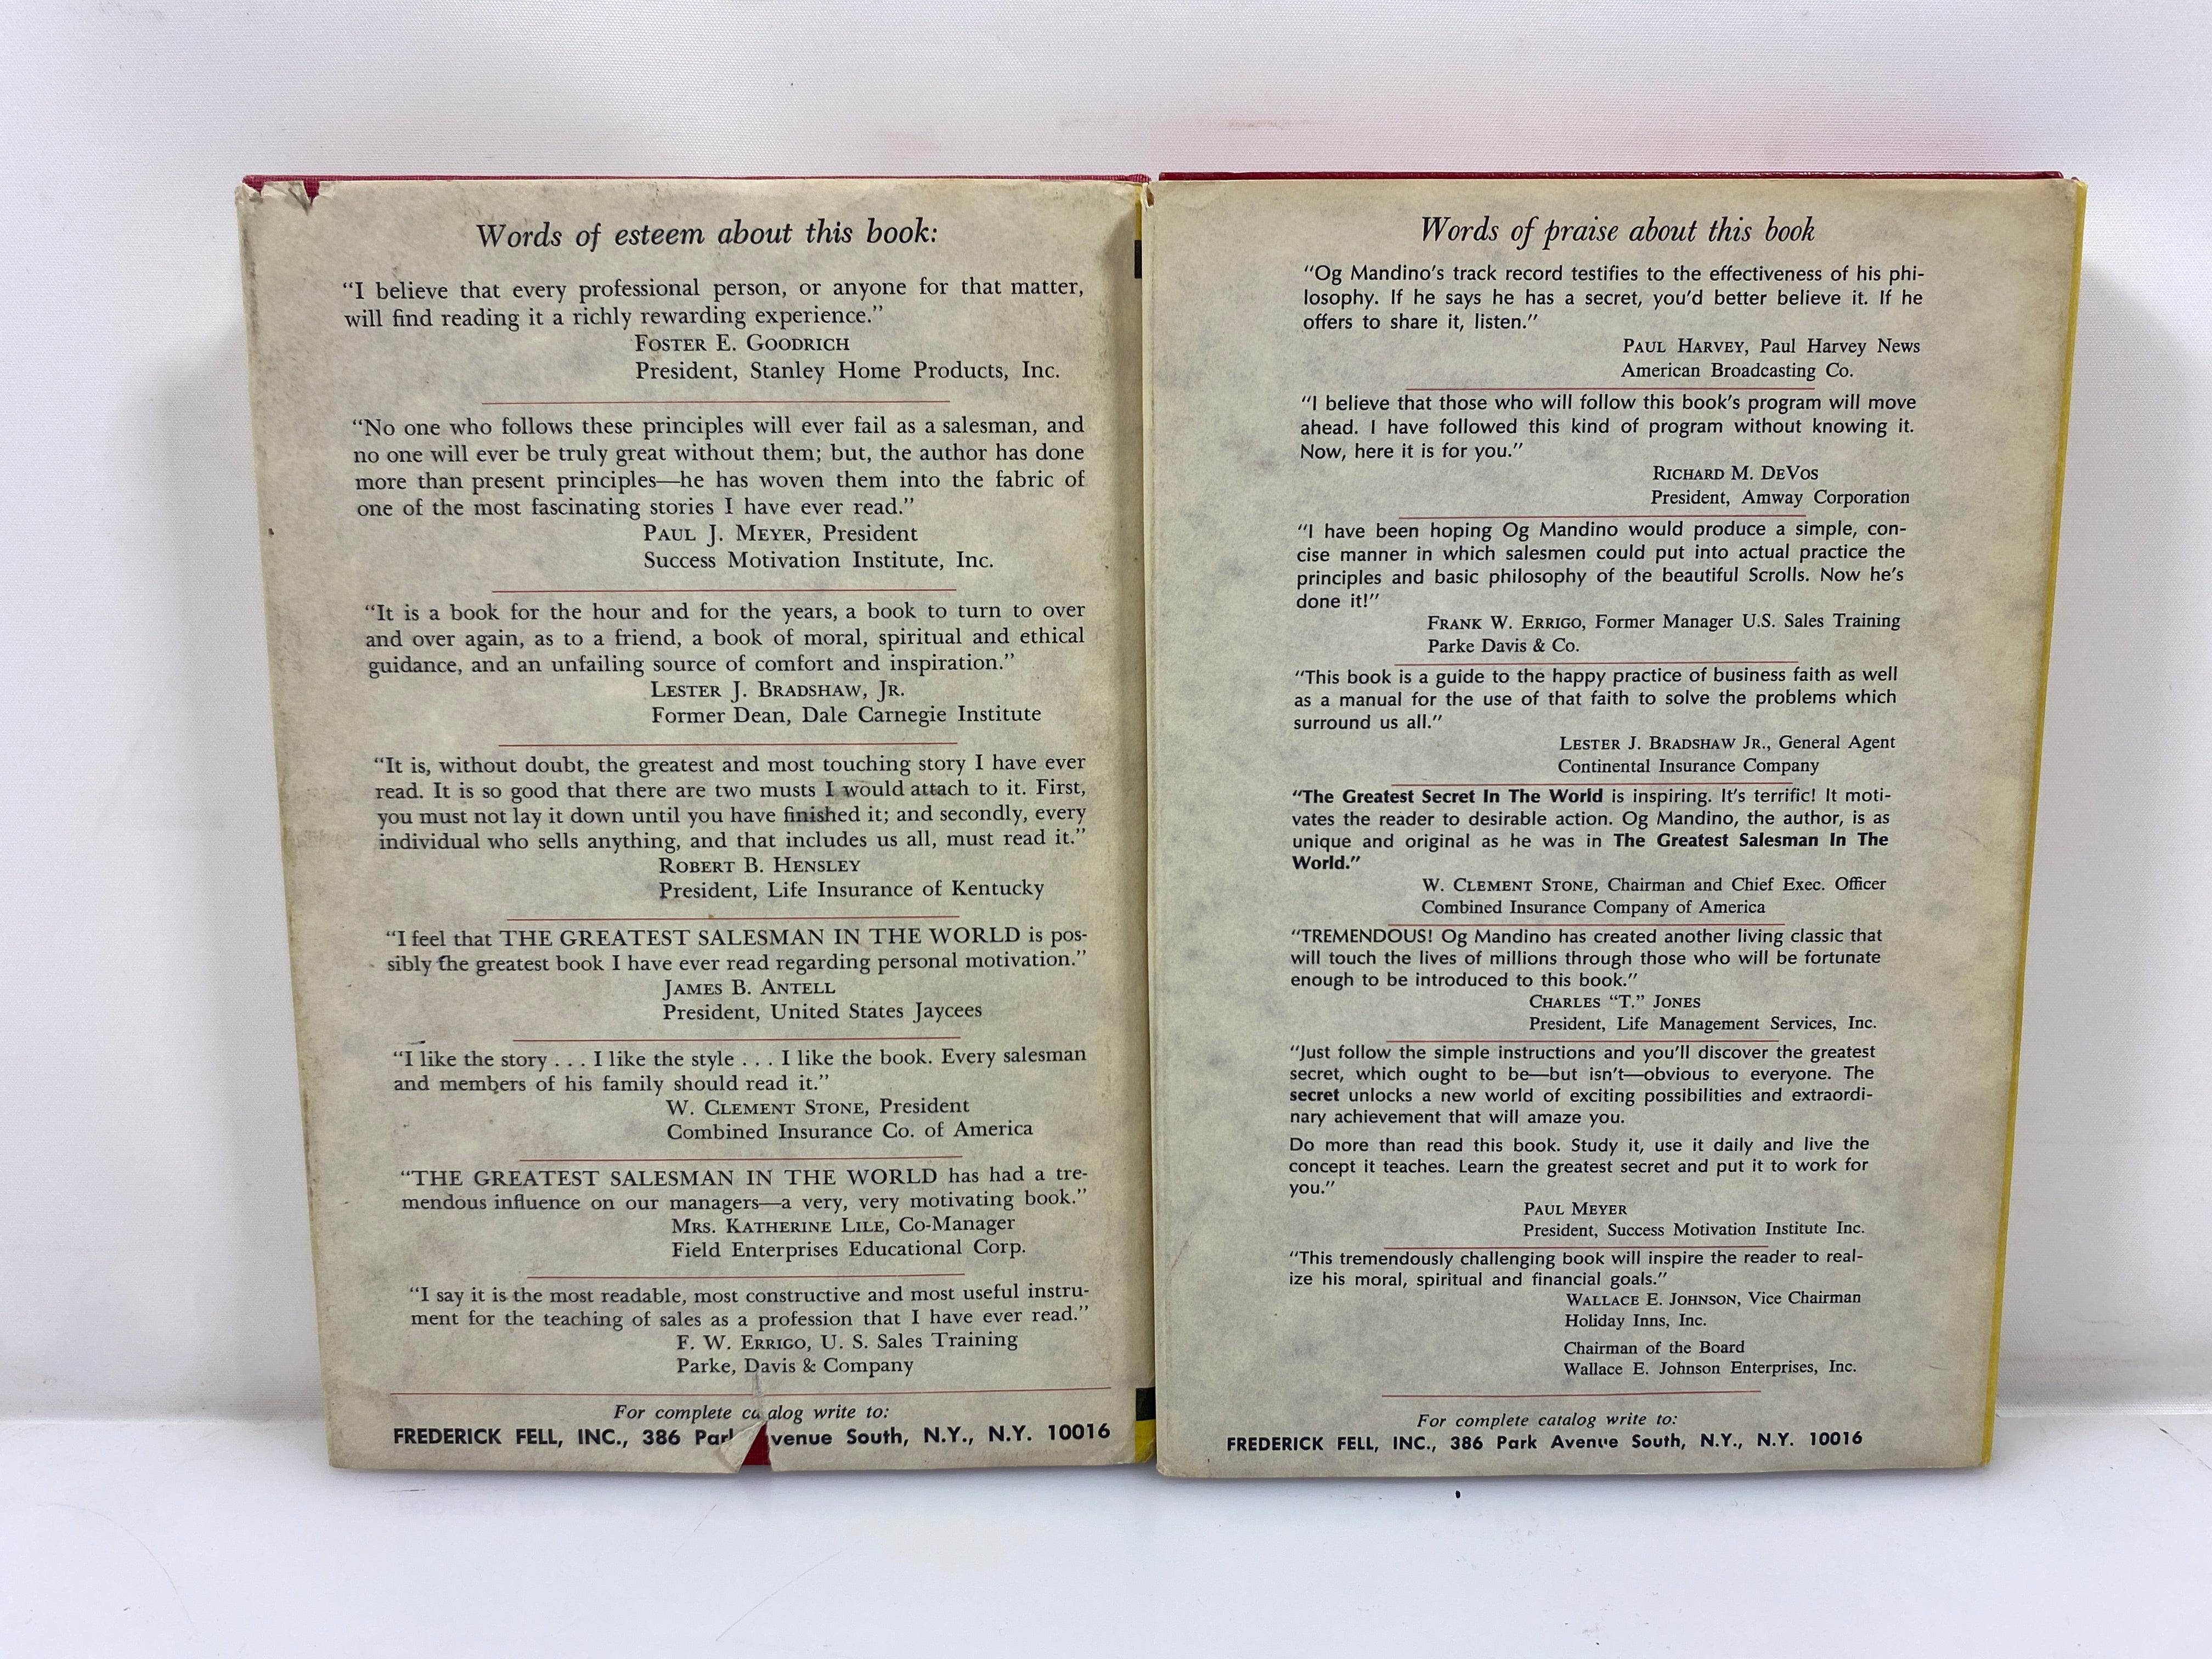 Words of esteem about this book:
“I believe that every professional person, or anyone for that matter,
will find reading it a richly rewarding experience.”
FOSTER E. GOODRICH
President, Stanley Home Products, Inc.
“No one who follows these principles will ever fail as a salesman, and
no one will ever be truly great without them; but, the author has done
more than present principles—he has woven them into the fabric of
one of the most fascinating stories I have ever read.”
PAUL J. MEYER, President
Success Motivation Institute, Inc.
“It is a book for the hour and for the years, a book to turn to over
and over again, as to a friend, a book of moral, spiritual and ethical
guidance, and an unfailing source of comfort and inspiration.”
LESTER J. BRADSHAW, JR.
Former Dean, Dale Carnegie Institute
“It is, without doubt, the greatest and most touching story I have ever
read. It is so good that there are two musts I would attach to it. First,
you must not lay it down until you have finished it; and secondly, every
individual who sells anything, and that includes us all, must read it.”
ROBERT B. HENSLEY
President, Life Insurance of Kentucky
“I feel that THE GREATEST SALESMAN IN THE WORLD is pos-
sibly the greatest book I have ever read regarding personal motivation.”
JAMES B. ANTELL
President, United States Jaycees
“I like the story . . . I like the style . . . I like the book. Every salesman
and members of his family should read it.”
W. CLEMENT STONE, President
Combined Insurance Co. of America
“THE GREATEST SALESMAN IN THE WORLD has had a tre-
mendous influence on our managers—a very, very motivating book.”
MRS. KATHERINE LILE, Co-Manager
Field Enterprises Educational Corp.
“I say it is the most readable, most constructive and most useful instru-
ment for the teaching of sales as a profession that I have ever read.”
F. W. ERRIGO, U. S. Sales Training
Parke, Davis & Company
For complete catalog write to:
FREDERICK FELL, INC., 386 Park Avenue South, N.Y., N.Y. 10016
Words of praise about this book
“Og Mandino’s track record testifies to the effectiveness of his phi-
losophy. If he says he has a secret, you’d better believe it. If he
offers to share it, listen.”
PAUL HARVEY, Paul Harvey News
American Broadcasting Co.
“I believe that those who will follow this book’s program will move
ahead. I have followed this kind of program without knowing it.
Now, here it is for you.”
RICHARD M. DEVOS
President, Amway Corporation
“I have been hoping Og Mandino would produce a simple, con-
cise manner in which salesmen could put into actual practice the
principles and basic philosophy of the beautiful Scrolls. Now he’s
done it!”
FRANK W. ERRIGO, Former Manager U.S. Sales Training
Parke Davis & Co.
“This book is a guide to the happy practice of business faith as well
as a manual for the use of that faith to solve the problems which
surround us all.”
LESTER J. BRADSHAW JR., General Agent
Continental Insurance Company
“The Greatest Secret In The World is inspiring. It’s terrific! It moti-
vates the reader to desirable action. Og Mandino, the author, is as
unique and original as he was in The Greatest Salesman In The
World.”
W. CLEMENT STONE, Chairman and Chief Exec. Officer
Combined Insurance Company of America
“TREMENDOUS! Og Mandino has created another living classic that
will touch the lives of millions through those who will be fortunate
enough to be introduced to this book.”
CHARLES “T.” JONES
President, Life Management Services, Inc.
“Just follow the simple instructions and you’ll discover the greatest
secret, which ought to be—but isn’t—obvious to everyone. The
secret unlocks a new world of exciting possibilities and extraordi-
nary achievement that will amaze you.
Do more than read this book. Study it, use it daily and live the
concept it teaches. Learn the greatest secret and put it to work for
you.”
PAUL MEYER
President, Success Motivation Institute Inc.
“This tremendously challenging book will inspire the reader to real-
ize his moral, spiritual and financial goals.”
WALLACE E. JOHNSON, Vice Chairman
Holiday Inns, Inc.
Chairman of the Board
Wallace E. Johnson Enterprises, Inc.
For complete catalog write to:
FREDERICK FELL, INC., 386 Park Avenue South, N.Y., N.Y. 10016